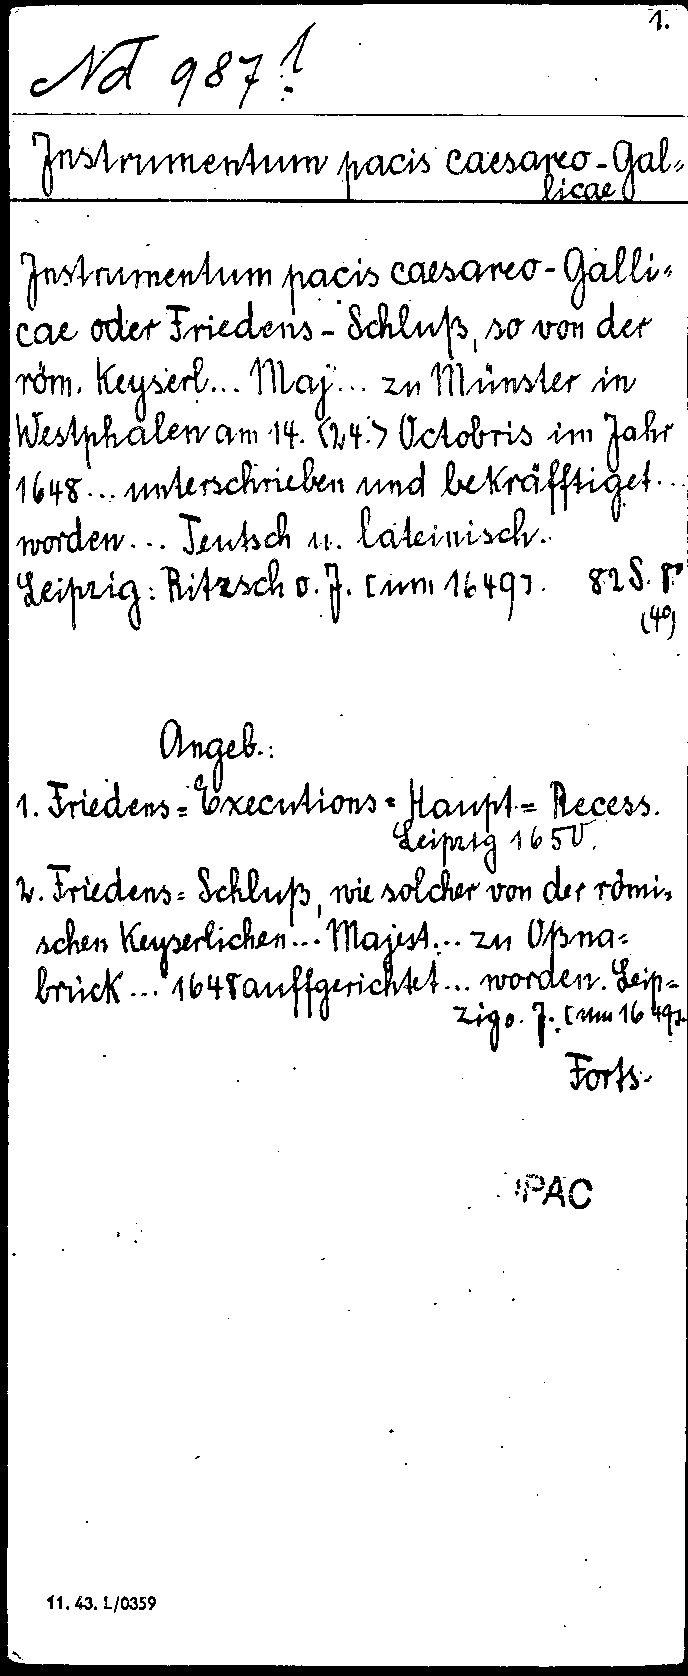 1.
Nd 987!
Instrumentum pacis caesareo-Gal-
licae
Instrumentum pacis caesareo-Galli-
cae oder Friedens-Schluß, so von der
röm. Keyserl... Maj... zu Münster in
Westphalen am 14. (24.) Octobris im Jahr
1648... unterschrieben und bekräfftiget...
worden... Teutsch u. lateinisch.
Leipzig: Ritzsch o. J. [um 1649]. 82 S. 8°
(4°)
Angeb.:
1. Friedens=Executions=Haupt=Recess.
Leipzig 1650.
2. Friedens=Schluß, wie solcher von der römi-
schen Keyserlichen... Majest... zu Oßna=
brück... 1648 auffgerichtet... worden. Leip=
zig o. J. [um 1649].
Forts.
PAC
11. 43. L/0359